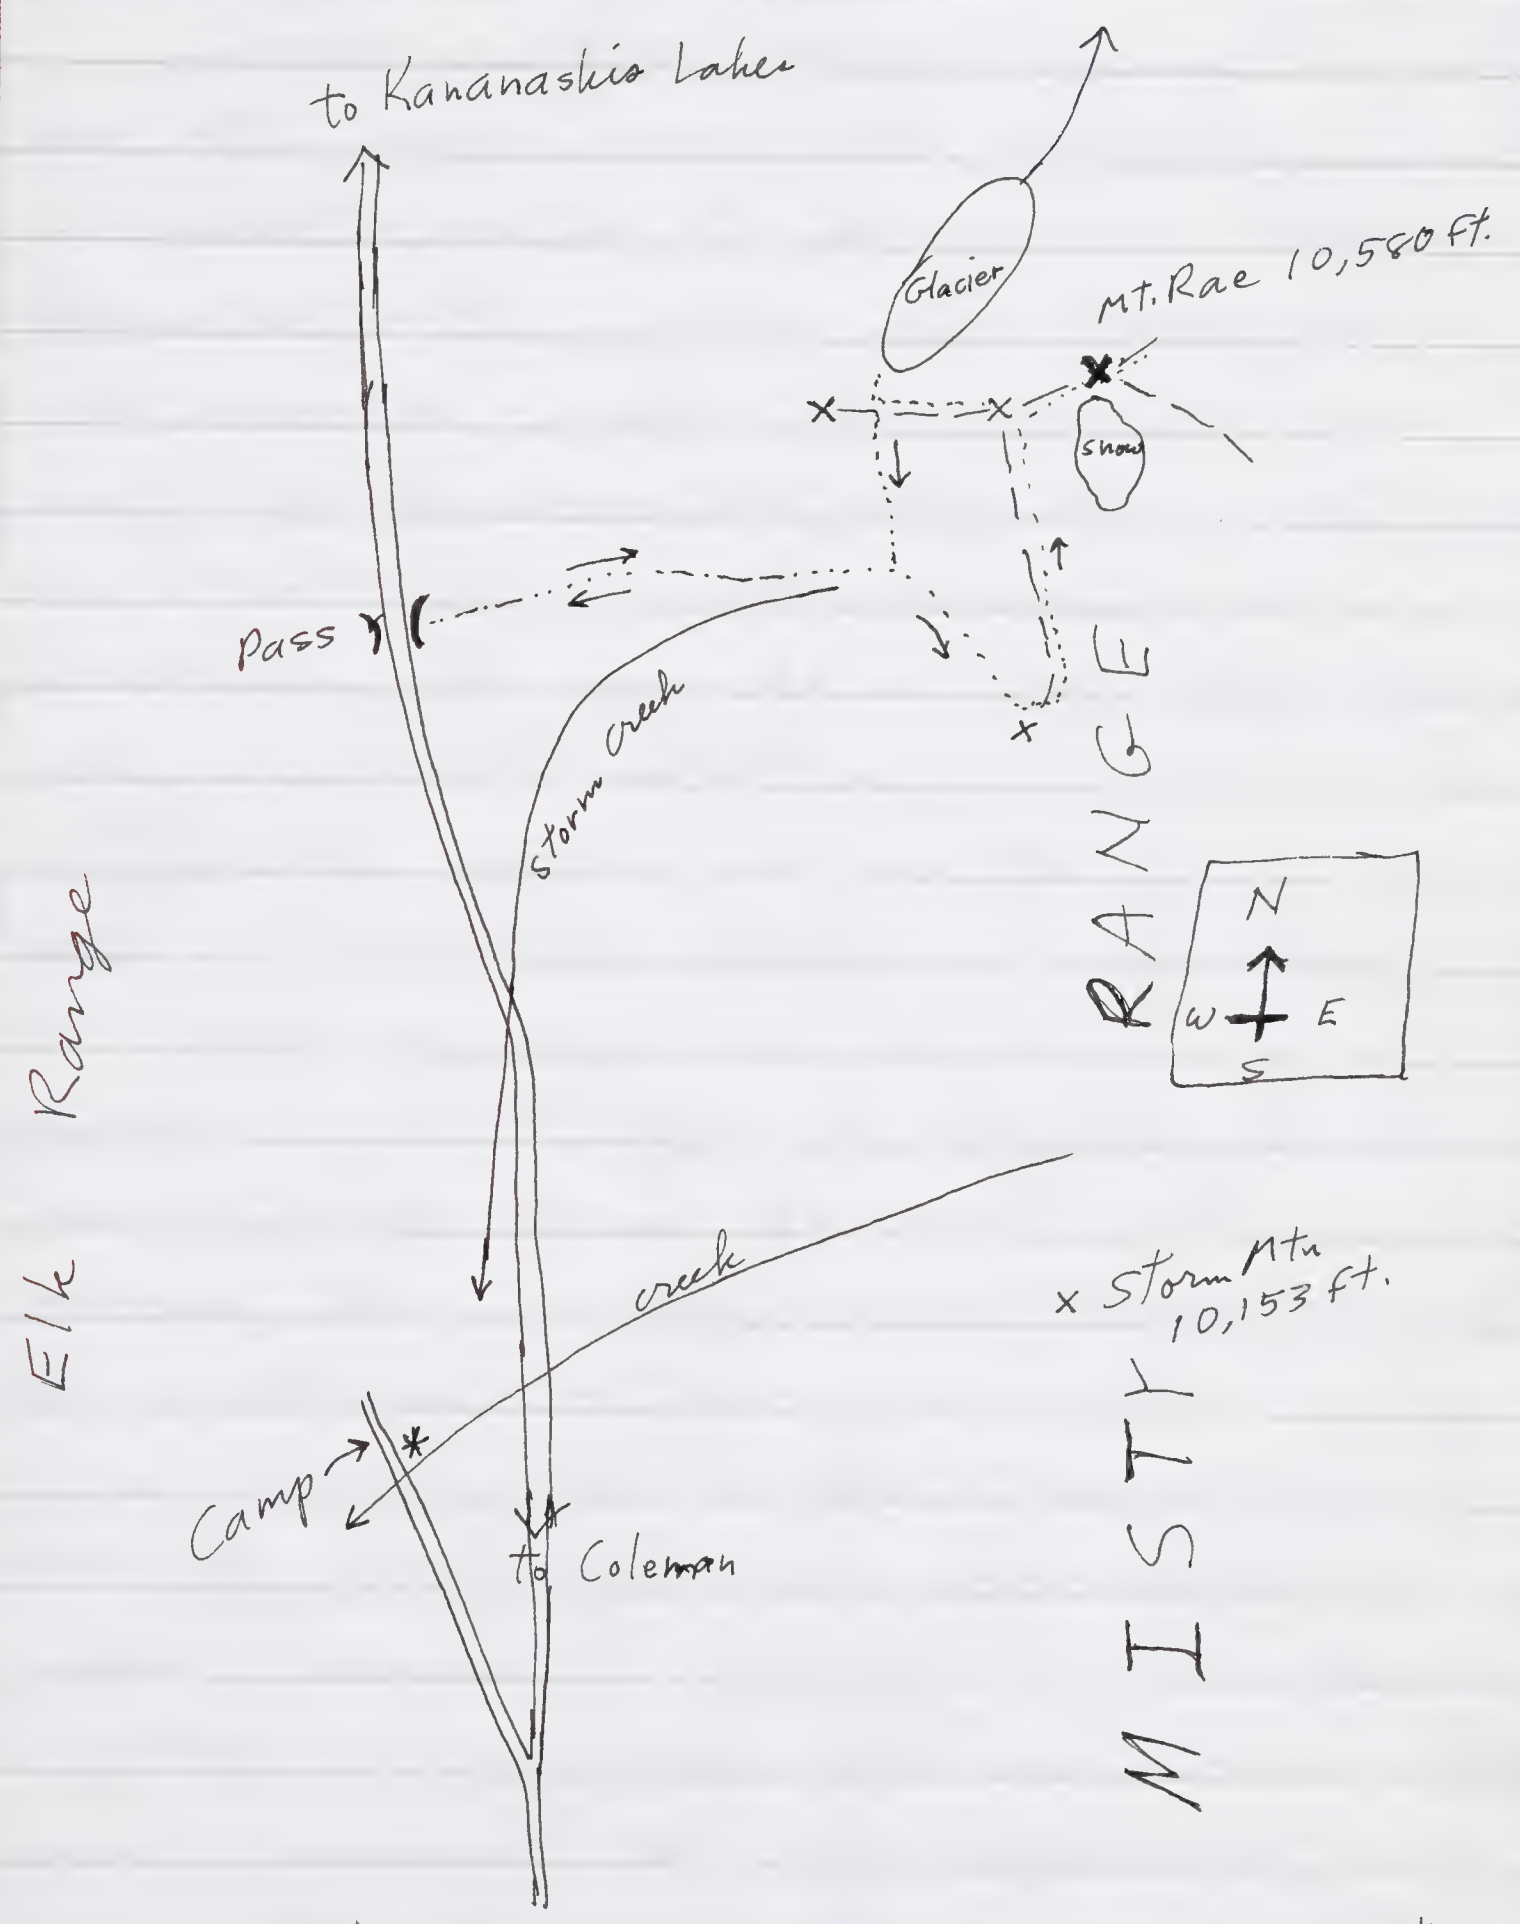 to Kananaskis Lakes
Glacier
Mt. Rae 10,580 ft.
Snow
Pass
Storm Creek
Elk Range
MISTY RANGE
N
W E
S
creek
Storm Mtn
10,153 ft.
Camp
to Coleman